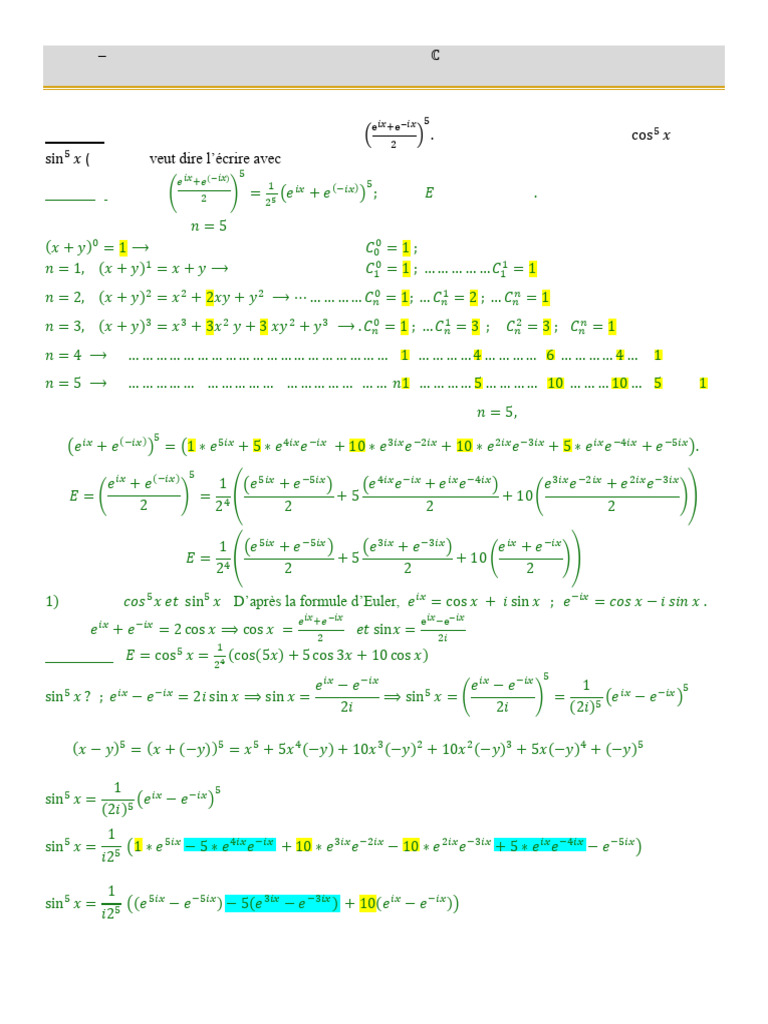 – ℂ
((e^{ix}+e^{−ix})/2)^5 . cos^5 x
sin^5 x ( veut dire l’écrire avec
((e^{ix}+e^{(−ix)})/2)^5 = 1/2^5 (e^{ix} + e^{(−ix)})^5 ; E .
n = 5
(x + y)^0 = 1 ⟶ C_0^0 = 1 ;
n = 1, (x + y)^1 = x + y ⟶ C_1^0 = 1 ; … … … … … C_1^1 = 1
n = 2, (x + y)^2 = x^2 + 2xy + y^2 ⟶ ⋯ … … … … C_n^0 = 1; … C_n^1 = 2 ; … C_n^n = 1
n = 3, (x + y)^3 = x^3 + 3x^2 y + 3 xy^2 + y^3 ⟶ . C_n^0 = 1 ; … C_n^1 = 3 ; C_n^2 = 3 ; C_n^n = 1
n = 4 ⟶ … … … … … … … … … … … … … … … … … … … 1 … … … … 4 … … … … 6 … … … … 4 … 1
n = 5 ⟶ … … … … … … … … … … … … … … … … … n1 … … … … 5 … … … … 10 … … … 10 … 5 1
n = 5,
(e^{ix} + e^{(−ix)})^5 = (1 ∗ e^{5ix} + 5 ∗ e^{4ix}e^{−ix} + 10 ∗ e^{3ix}e^{−2ix} + 10 ∗ e^{2ix}e^{−3ix} + 5 ∗ e^{ix}e^{−4ix} + e^{−5ix}).
E = ((e^{ix} + e^{(−ix)})/2)^5 = 1/2^4 ((e^{5ix} + e^{−5ix})/2 + 5 (e^{4ix}e^{−ix} + e^{ix}e^{−4ix})/2 + 10 ((e^{3ix}e^{−2ix} + e^{2ix}e^{−3ix})/2))
E = 1/2^4 ((e^{5ix} + e^{−5ix})/2 + 5 (e^{3ix} + e^{−3ix})/2 + 10 ((e^{ix} + e^{−ix})/2))
1) cos^5 x et sin^5 x D’après la formule d’Euler, e^{ix} = cos x + i sin x ; e^{−ix} = cos x − i sin x .
e^{ix} + e^{−ix} = 2 cos x ⟹ cos x = (e^{ix}+e^{−ix})/2 et sinx = (e^{ix}−e^{−ix})/2i
E = cos^5 x = 1/2^4 (cos(5x) + 5 cos 3x + 10 cos x)
sin^5 x ? ; e^{ix} − e^{−ix} = 2i sin x ⟹ sin x = (e^{ix} − e^{−ix})/2i ⟹ sin^5 x = ((e^{ix} − e^{−ix})/2i)^5 = 1/(2i)^5 (e^{ix} − e^{−ix})^5
(x − y)^5 = (x + (−y))^5 = x^5 + 5x^4(−y) + 10x^3(−y)^2 + 10x^2(−y)^3 + 5x(−y)^4 + (−y)^5
sin^5 x = 1/(2i)^5 (e^{ix} − e^{−ix})^5
sin^5 x = 1/i2^5 (1 ∗ e^{5ix} − 5 ∗ e^{4ix}e^{−ix} + 10 ∗ e^{3ix}e^{−2ix} − 10 ∗ e^{2ix}e^{−3ix} + 5 ∗ e^{ix}e^{−4ix} − e^{−5ix})
sin^5 x = 1/i2^5 ((e^{5ix} − e^{−5ix}) − 5(e^{3ix} − e^{−3ix}) + 10(e^{ix} − e^{−ix}))